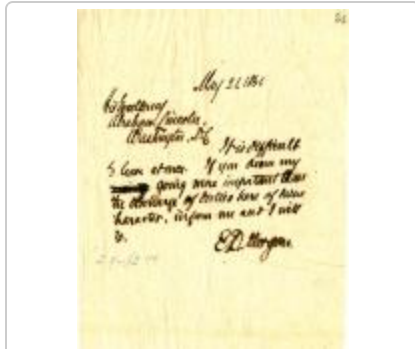 May 21 1861
His Excellency
Abraham Lincoln,
Washington, D.C.
It is difficult
to leave at once. If you deem my
going more important than
the discharge of duties here of
character, inform me and I will
go.
E.D. Morgan